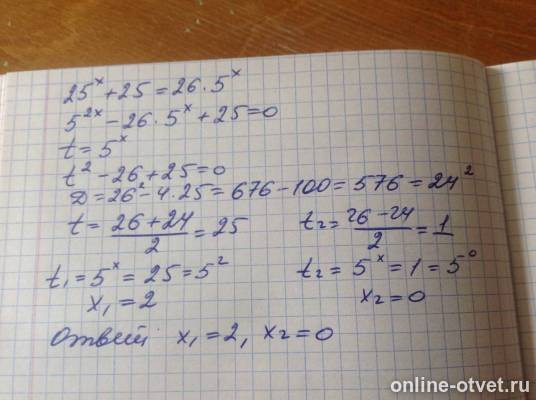 25^x + 25 = 26 · 5^x
5^2x − 26 · 5^x + 25 = 0
t = 5^x
t^2 − 26 + 25 = 0
D = 26^2 − 4 · 25 = 676 − 100 = 576 = 24^2
t = (26 + 24)/2 = 25   t₂ = (26 − 24)/2 = 1
t₁ = 5^x = 25 = 5^2   t₂ = 5^x = 1 = 5^0
x₁ = 2   x₂ = 0
Ответ: x₁ = 2, x₂ = 0
online-otvet.ru